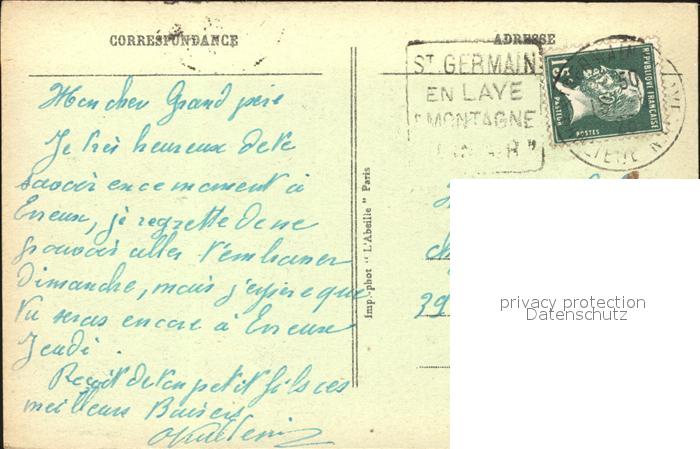 CORRESPONDANCE
Mon cher Grand père
Je très heureux de te
savoir en ce moment à
Evreux, je regrette de ne
pouvoir aller t'embrasser
dimanche, mais j'espère que
tu seras encore à Evreux
Jeudi.
Reçoit de ton petit fils ces
meilleurs Baisers
Imp.-phot "L'Abeille" Paris
ADRESSE
ST GERMAIN
EN LAYE
"MONTAGNE
REPUBLIQUE FRANÇAISE
POSTES
39
privacy protection
Datenschutz